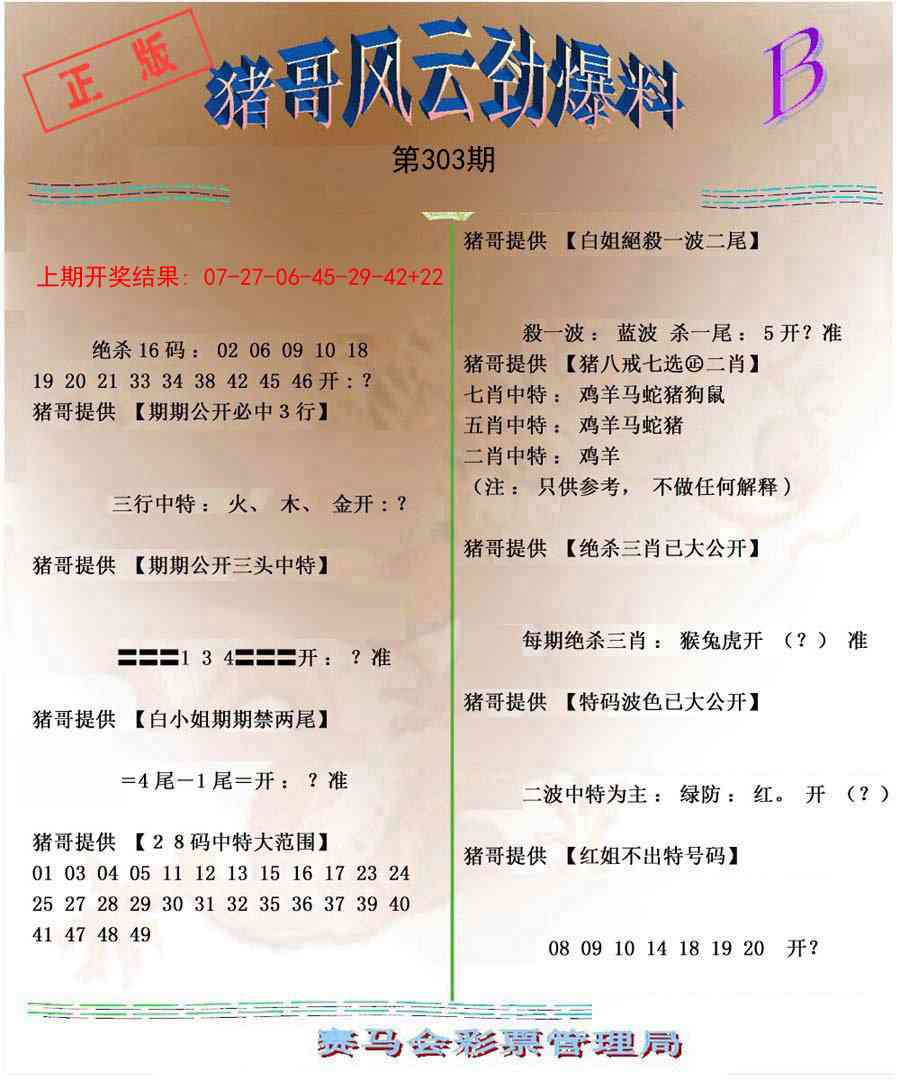 正版
猪哥风云劲爆料
B
第303期
上期开奖结果：07-27-06-45-29-42+22
绝杀16码：02 06 09 10 18
19 20 21 33 34 38 42 45 46开：?
猪哥提供 【期期公开必中３行】
三行中特：火、木、金开：?
猪哥提供 【期期公开三头中特】
〓〓〓1 3 4〓〓〓开：？准
猪哥提供 【白小姐期期禁两尾】
＝4尾－1尾＝开：？准
猪哥提供 【２８码中特大范围】
01 03 04 05 11 12 13 15 16 17 23 24
25 27 28 29 30 31 32 35 36 37 39 40
41 47 48 49
猪哥提供 【白姐絕殺一波二尾】
殺一波：蓝波 杀一尾：5开？准
猪哥提供 【猪八戒七选㊣二肖】
七肖中特：鸡羊马蛇猪狗鼠
五肖中特：鸡羊马蛇猪
二肖中特：鸡羊
（注：只供参考，不做任何解释）
猪哥提供 【绝杀三肖已大公开】
每期绝杀三肖：猴兔虎开（？）准
猪哥提供 【特码波色已大公开】
二波中特为主：绿防：红。开（？）
猪哥提供 【红姐不出特号码】
08 09 10 14 18 19 20 开?
赛马会彩票管理局